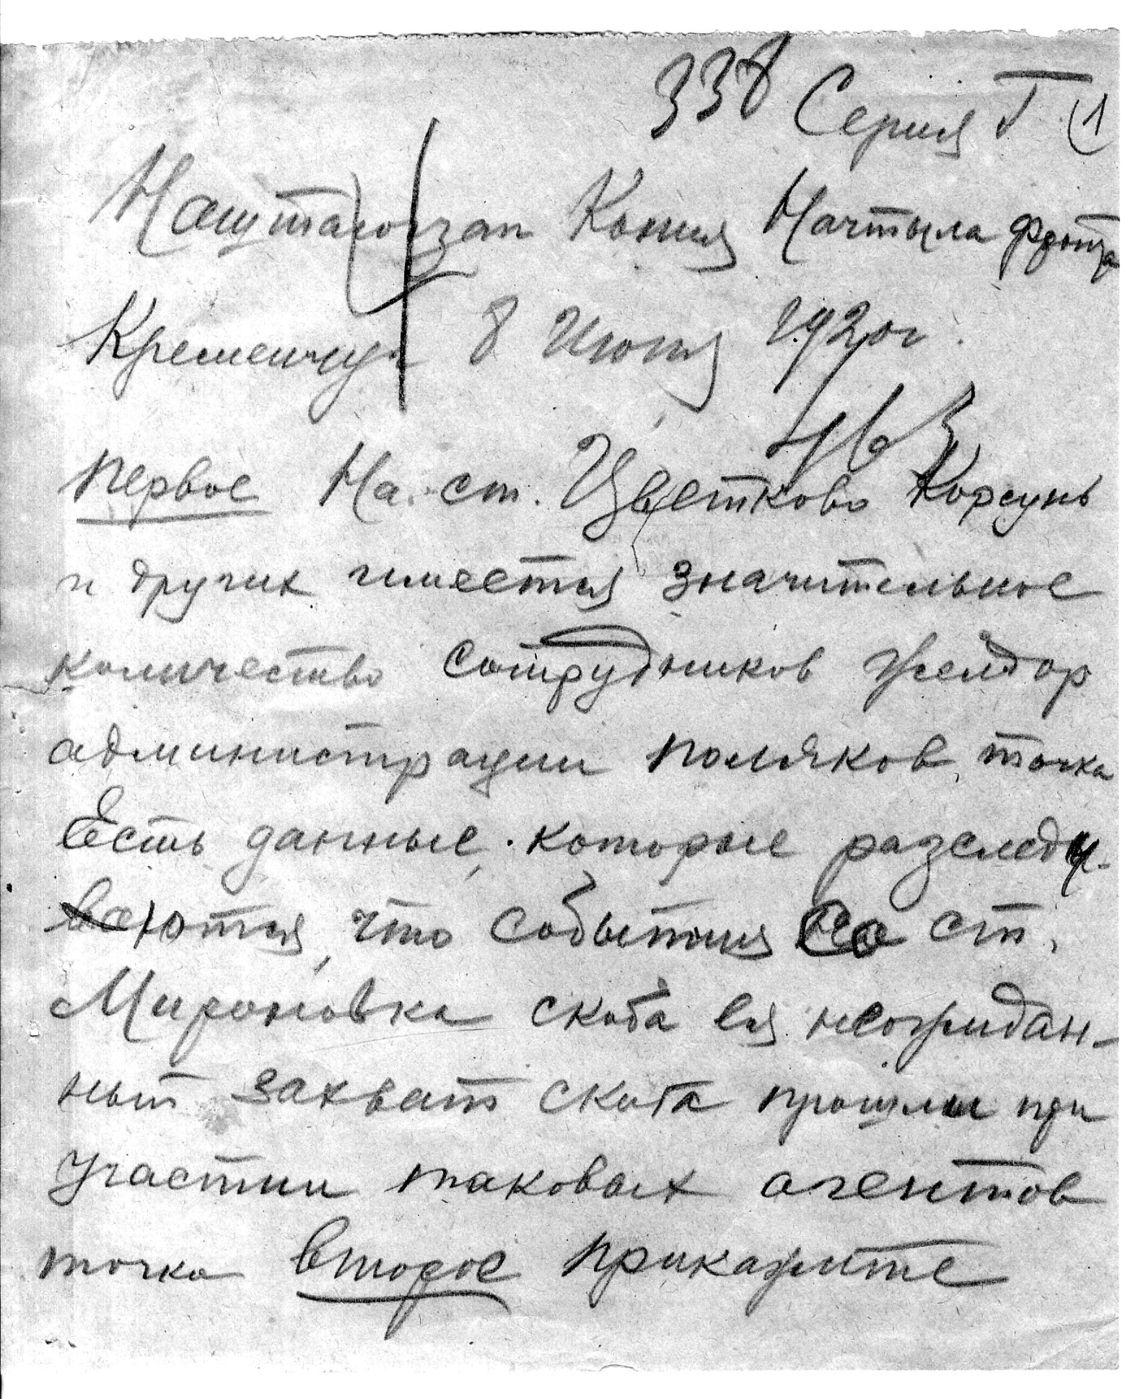 338 Серия Г (1
Наштаюгзап Копия Начтыла фронта
Кременчуг 8 Июня 1920г.
463
Первое На ст. Цветково Корсунь
и других имеется значительное
количество сотрудников желдор
администрации поляков точка
Есть данные, которые разследу-
ются, что события на ст.
Мироновка скота ея неожидан-
ный захват скота прошли при
участии таковых агентов
точка Второе Прикажите